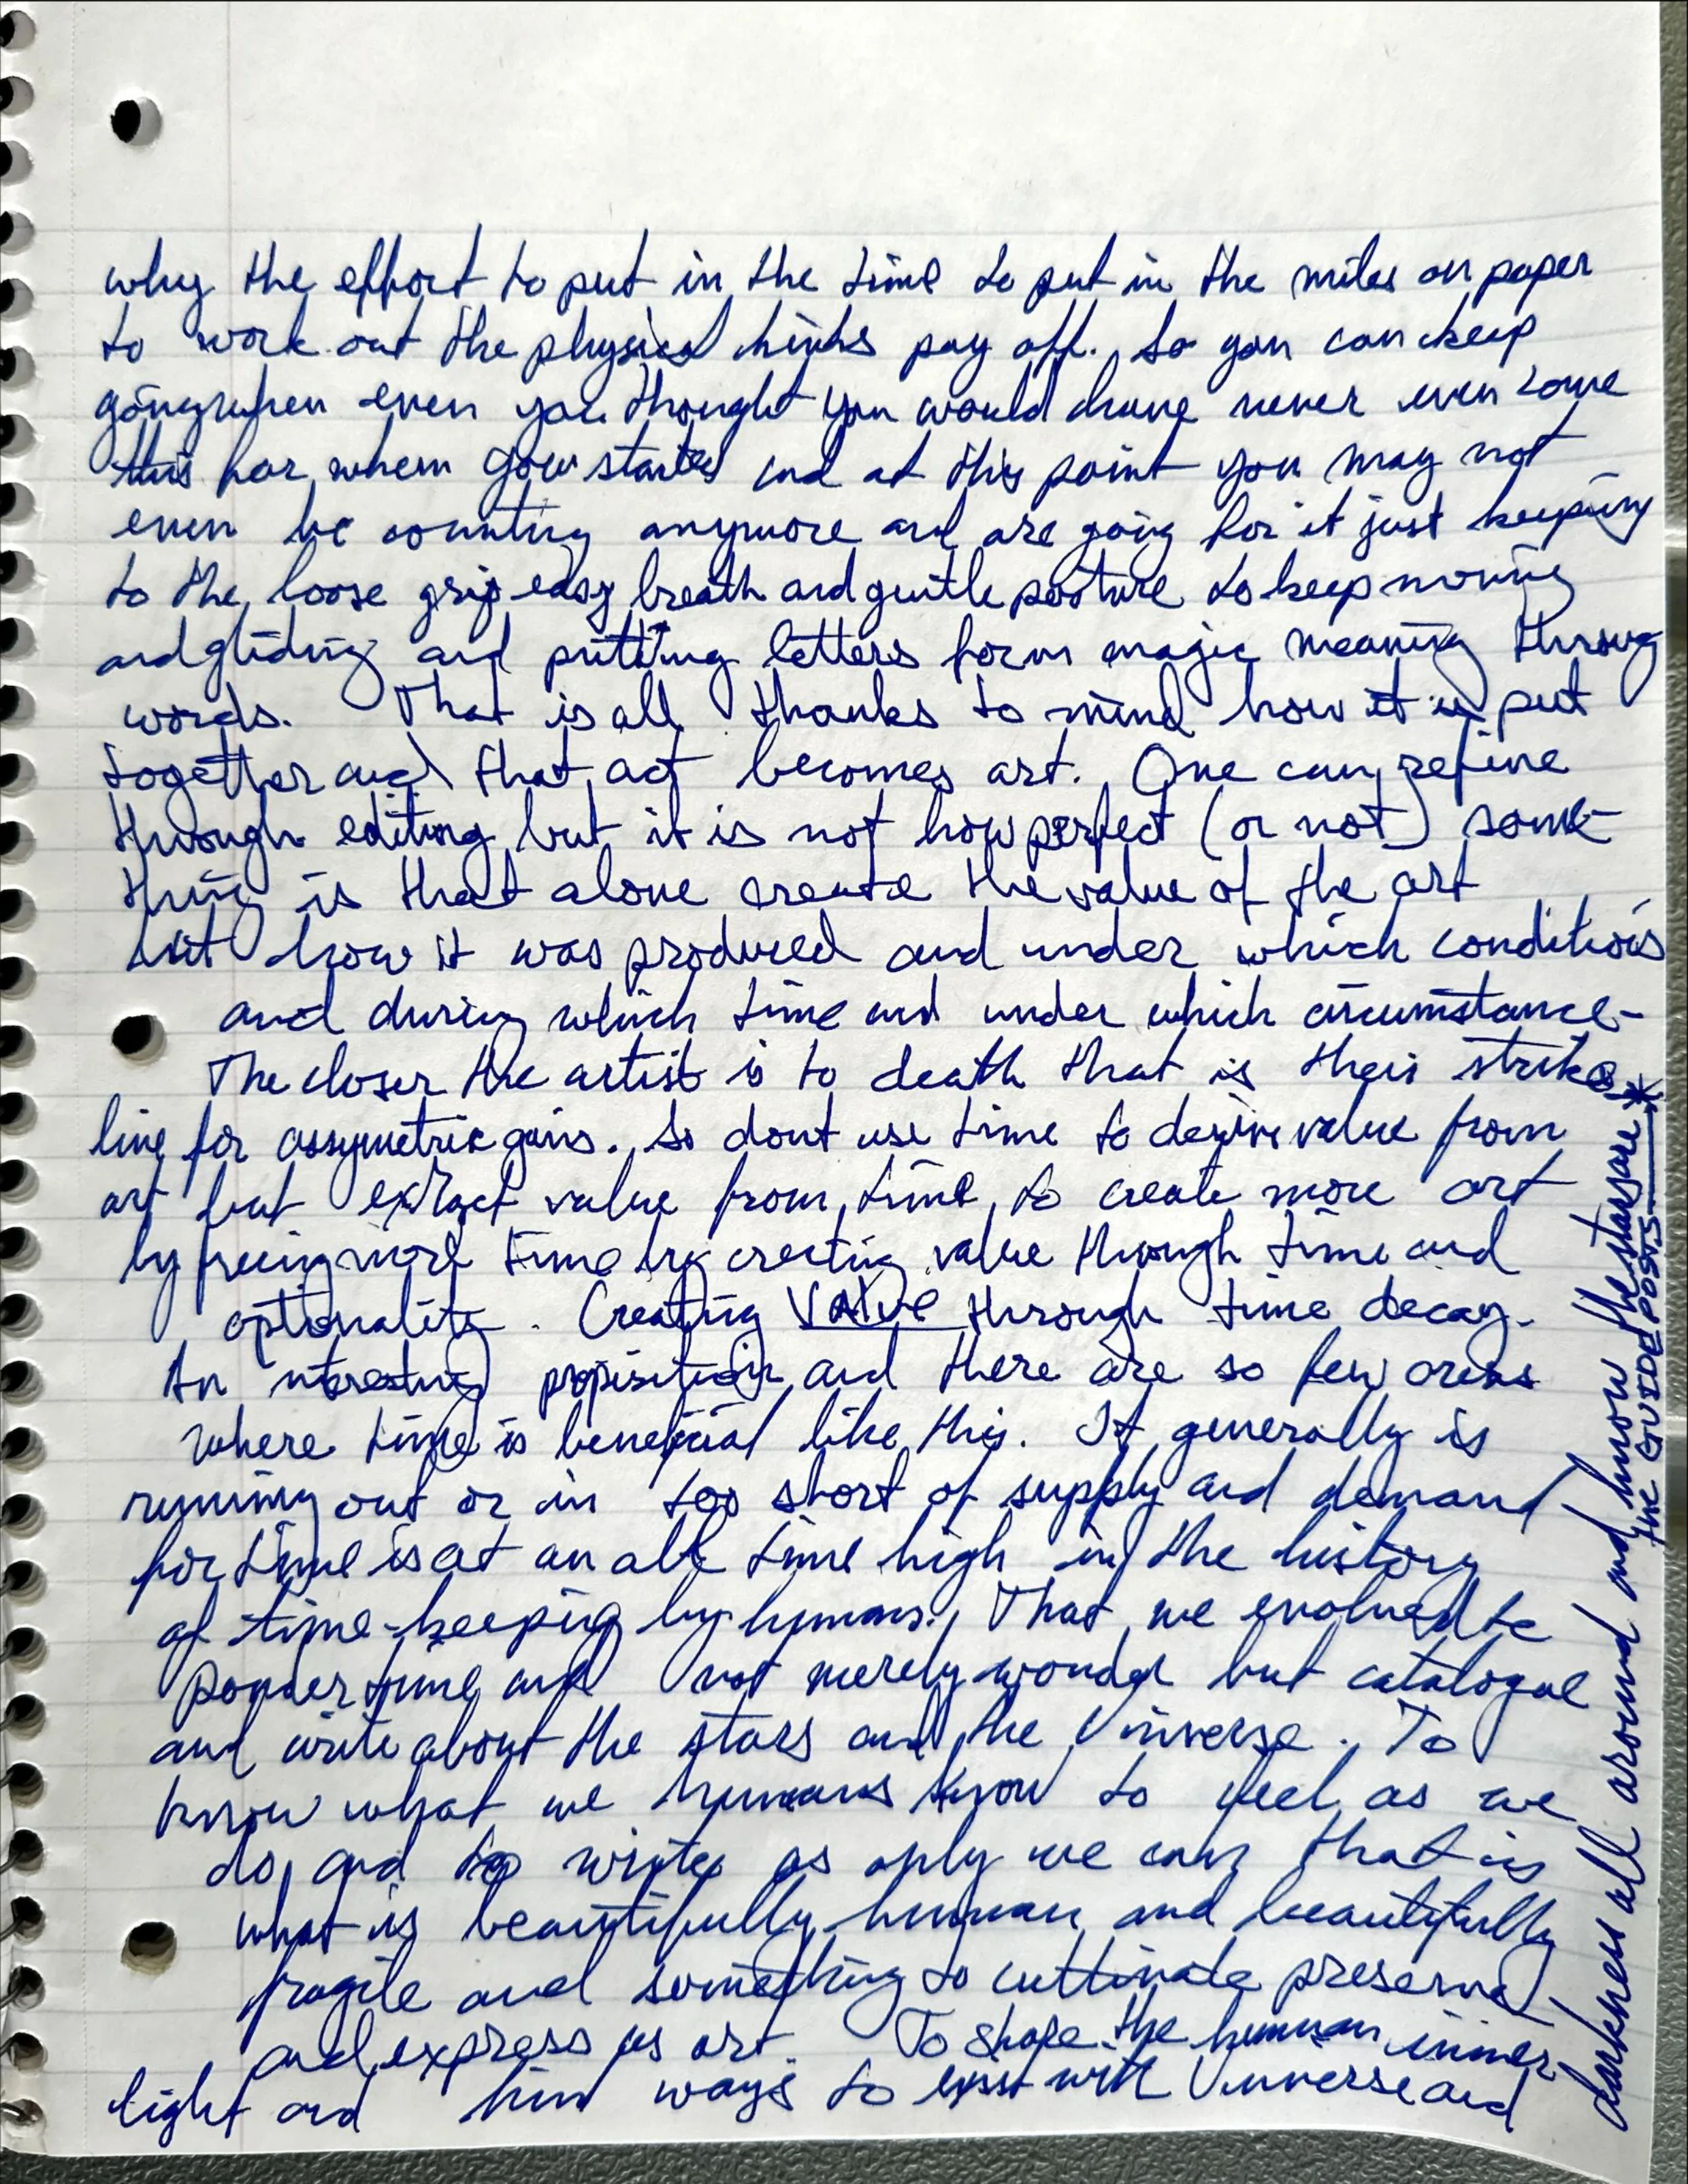 why the effort to put in the time to put in the miles on paper
to work out the physical kinks pay off. So you can keep
going when even you thought you would have never even come
this far when you started and at this point you may not
even be counting anymore and are going for it just keeping
to the loose grip easy breath and gentle posture to keep moving
and gliding and putting letters form magic meaning throug
words. That is all thanks to mind how it is put
together and that act becomes art. One can refine
through editing but it is not how perfect (or not) some-
thing is that alone create the value of the art
but how it was produced and under which conditions
and during which time and under which circumstance-
The closer the artist is to death that is their strike
line for assymetric gains. So dont use time to derive value from
art but extract value from time to create more art
by freeing more time by creating value through time and
optionality. Creating VALUE through time decay.
An nteresting propisition and there are so few areas
where time is beneficial like this. It generally is
running out or in too short of supply and demand
for time is at an all time high in the history
of time-keeping by humans. That we evolved to
ponder time and not merely wonder but catalogue
and write about the stars and the Universe. To
know what we humans know to feel as we
do, and to write as only we can that is
what is beautifully human and beautifully
fragile and something to cultivate preserve
and express as art. To shape the human inner
light and find ways to exist with Universe and
darkness all around and know the stars are *
the GUIDE POSTS *